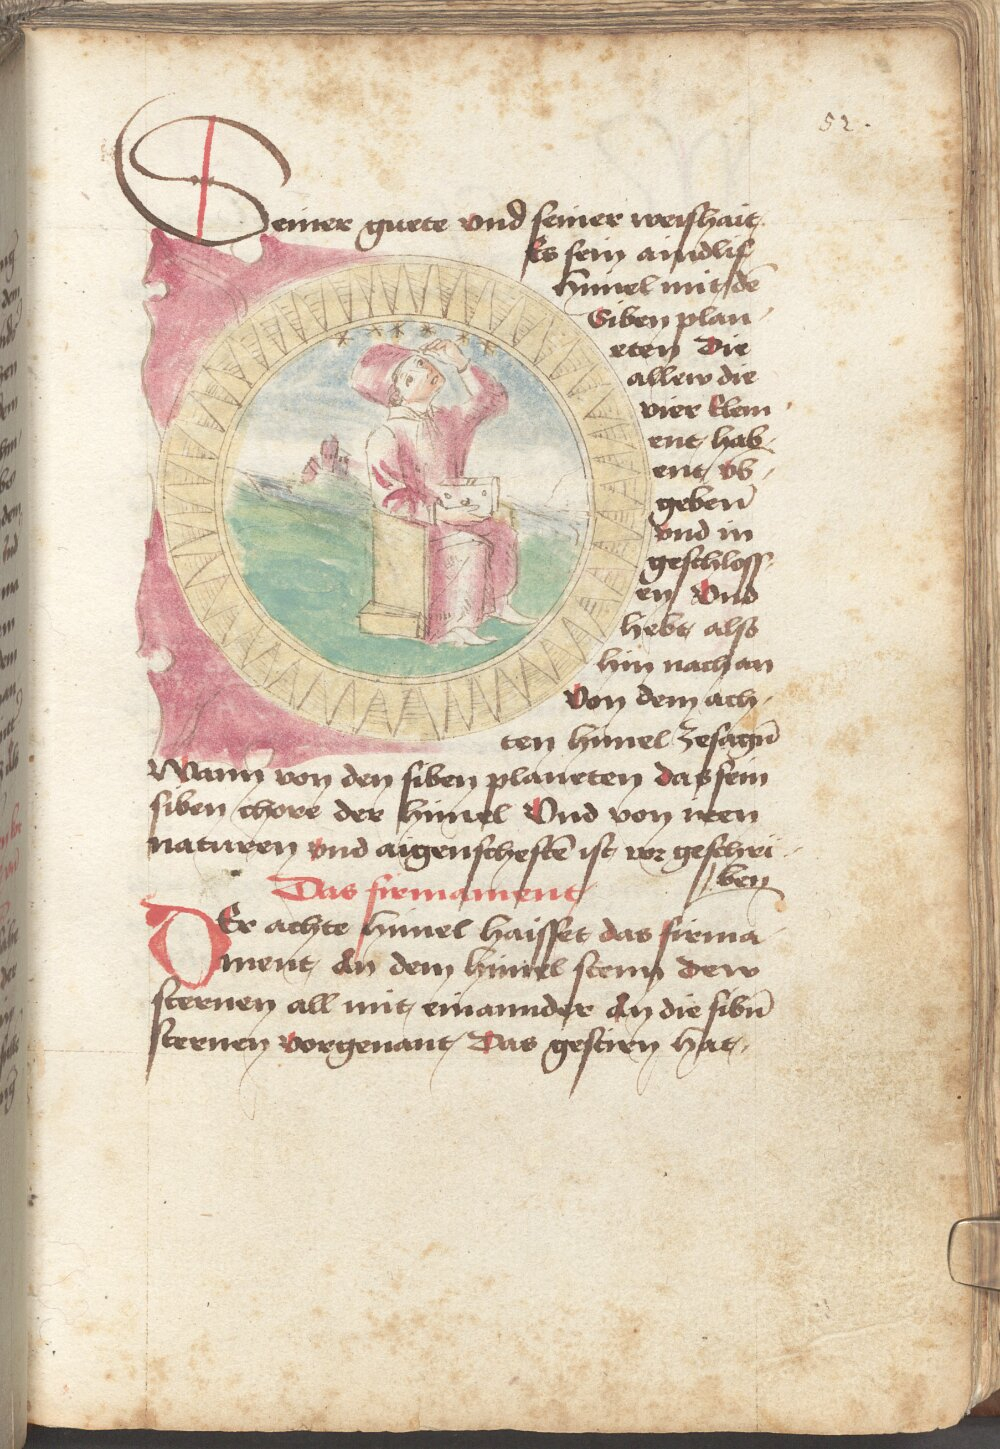 52.
Seiner guete vnd seiner weishait
Es sein aindlif
himel mit de͂
Siben plan
eten Die
allew die
vier Elem
ent hab
ent vb
geben͂
vnd in
geschloss
en Vnd
hebt also
hin nach an
Von dem ach
ten himel zesagn͂
Wann von den siben planeten das sein
siben chore der himel Vnd von iren
naturen vnd aigenschefte͂ ist vor geschri
ben
Das firmament
DEr achte himel haisset das firma
ment An dem himel stenn dew
sternen all mit einannder An die sibn͂
sternen vorgenant Das gestirn hat